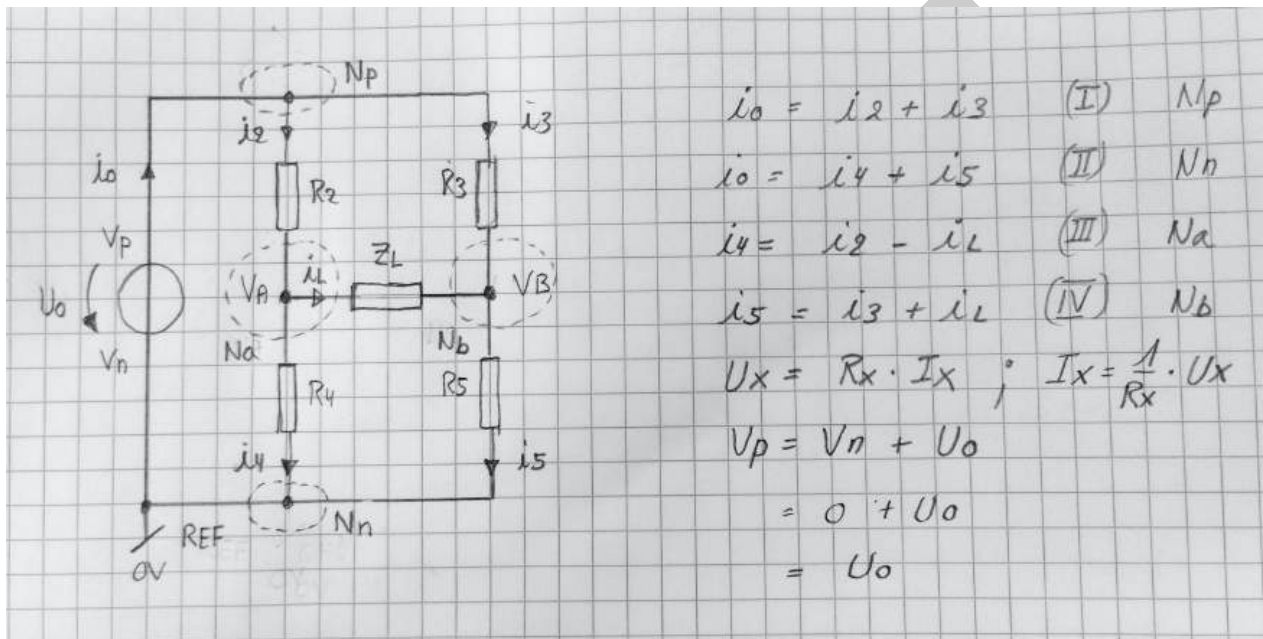 Np
i2
i3
i0
R2
R3
Vp
ZL
U0
VA
iL
VB
Vn
Na
Nb
R4
R5
i4
i5
REF
Nn
0V
i0 = i2 + i3 (I) Np
i0 = i4 + i5 (II) Nn
i4 = i2 - iL (III) Na
i5 = i3 + iL (IV) Nb
Ux = Rx · Ix ; Ix = 1/Rx · Ux
Vp = Vn + U0
= 0 + U0
= U0